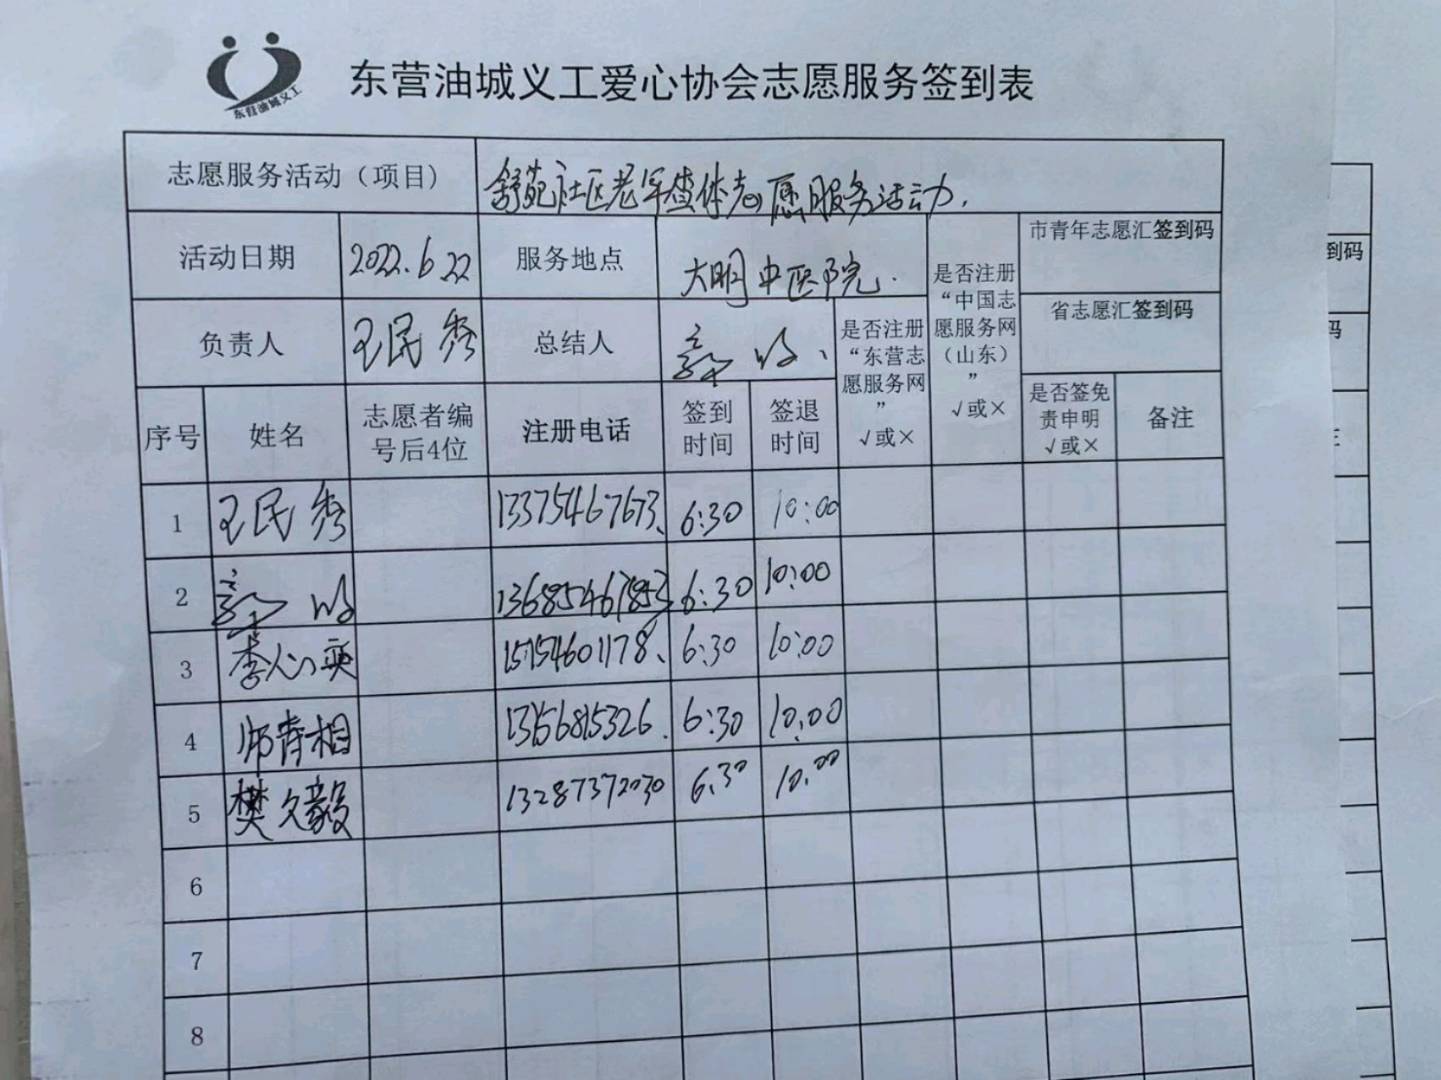 东营油城义工
东营油城义工爱心协会志愿服务签到表
志愿服务活动（项目） 舒苑社区老年查体志愿服务活动.
活动日期 2022.6.22 服务地点 大明中医院.
负责人 王民秀 总结人
是否注册
“东营志
愿服务网
”
√或×
是否注册
“中国志
愿服务网
（山东）
”
√或×
市青年志愿汇签到码
省志愿汇签到码
序号 姓名
志愿者编
号后4位
注册电话
签到
时间
签退
时间
是否签免
责申明
√或×
备注
1 王民秀 13375467673、 6:30 10:00
2 13685467853 6:30 10:00
3 李心英 15154601178、 6:30 10:00
4 师青相 13156815326. 6:30 10:00
5 樊久毅 13287372030 6.30 10.00
6
7
8
到码
码